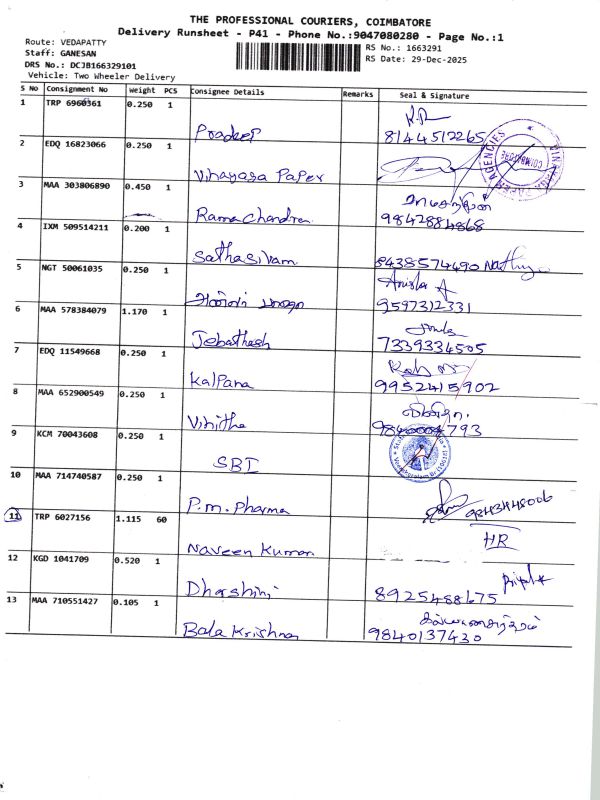 THE PROFESSIONAL COURIERS, COIMBATORE
Delivery Runsheet - P41 - Phone No.:9047080280 - Page No.:1
Route: VEDAPATTY
Staff: GANESAN
DRS No.: DCJB166329101
Vehicle: Two Wheeler Delivery
RS No.: 1663291
RS Date: 29-Dec-2025
S No Consignment No Weight PCS Consignee Details Remarks Seal & Signature
1 TRP 6960361 0.250 1
Pradeep 8144512265
2 EDQ 16823066 0.250 1
Vinayaga Paper
3 MAA 303806890 0.450 1
Ramachandran 9842884868
4 IXM 509514211 0.200 1
Sathasivam 8438574490
5 NGT 50061035 0.250 1
Anisha A
9597312331
6 MAA 578384079 1.170 1
Jebathash 7339334505
7 EDQ 11549668 0.250 1
Kalpana 9952415902
8 MAA 652900549 0.250 1
Vinitha
9 KCM 70043608 0.250 1
SBI
10 MAA 714740587 0.250 1
P.m. Pharma 9843448006
11 TRP 6027156 1.115 60
HR
Naveen Kumar
12 KGD 1041709 0.520 1
Dharshini 8925488675
13 MAA 710551427 0.105 1
Bala Krishnan 9840137430